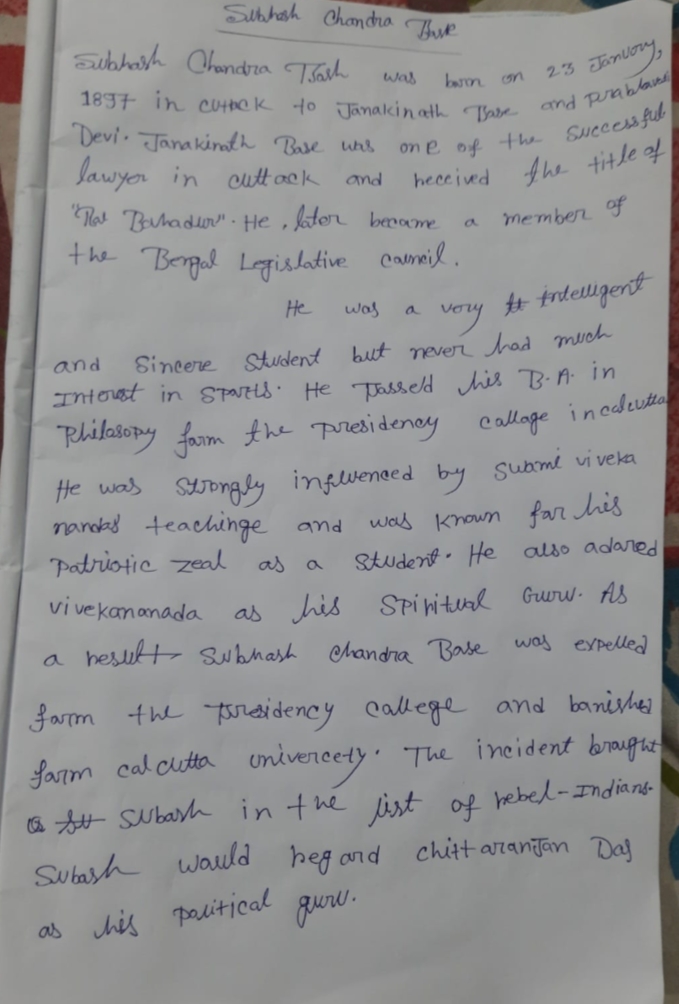 Subhash Chandra Bose
Subhash Chandra Bosh was born on 23 January,
1897 in cuttack to Janakinath Base and
Devi. Janakinath Base was one of the successful
lawyer in cuttack and received the title of
"Rai Bahadur". He, later became a member of
the Bengal Legislative council.
He was a very intelligent
and sincere student but never had much
Interest in sparts. He passed his B.A. in
Philosopy farm the presidency callage in calcutta
He was strongly influenced by swami viveka
nandas teachinge and was known far his
patriotic zeal as a student. He also adared
vivekananada as his spiritual Guru. As
a result subhash chandra Base was expelled
farm the presidency callege and banished
farm calcutta univercety. The incident braught
subash in the list of rebel-Indians.
Subash would regard chittaranjan Das
as his political guru.